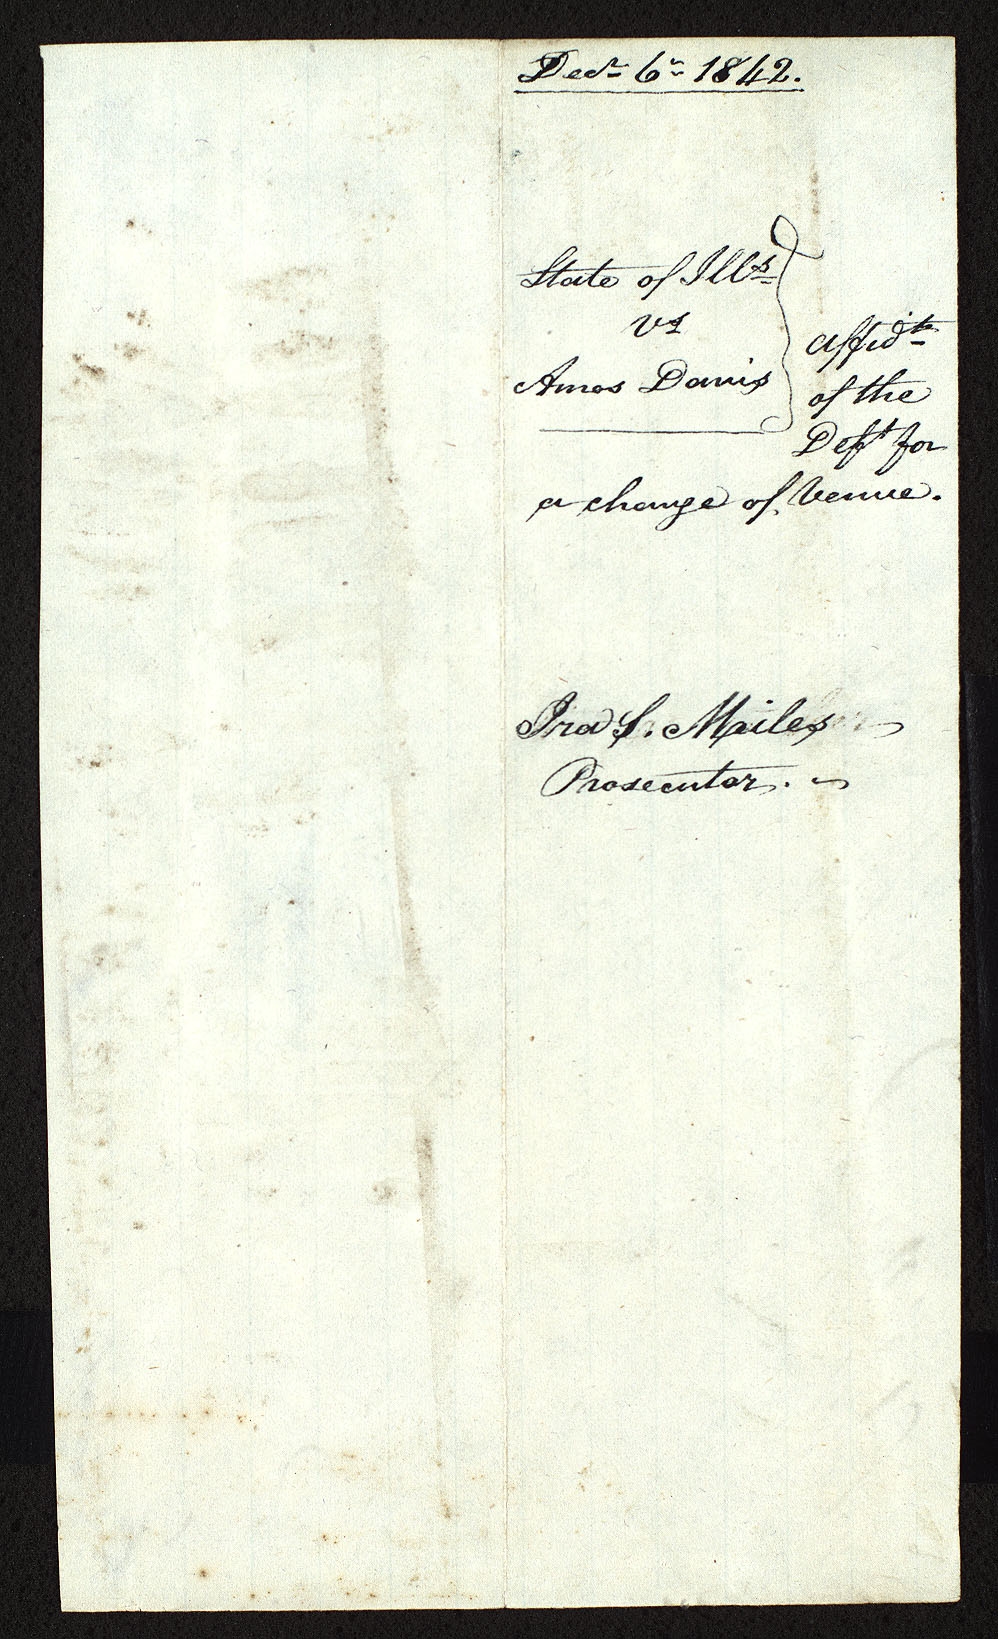 Decr 6th 1842.
State of Ills
vs
Amos Davis
affidt
of the
Deft for
a change of Venue.
Ira S. Miles
Prosecutor.